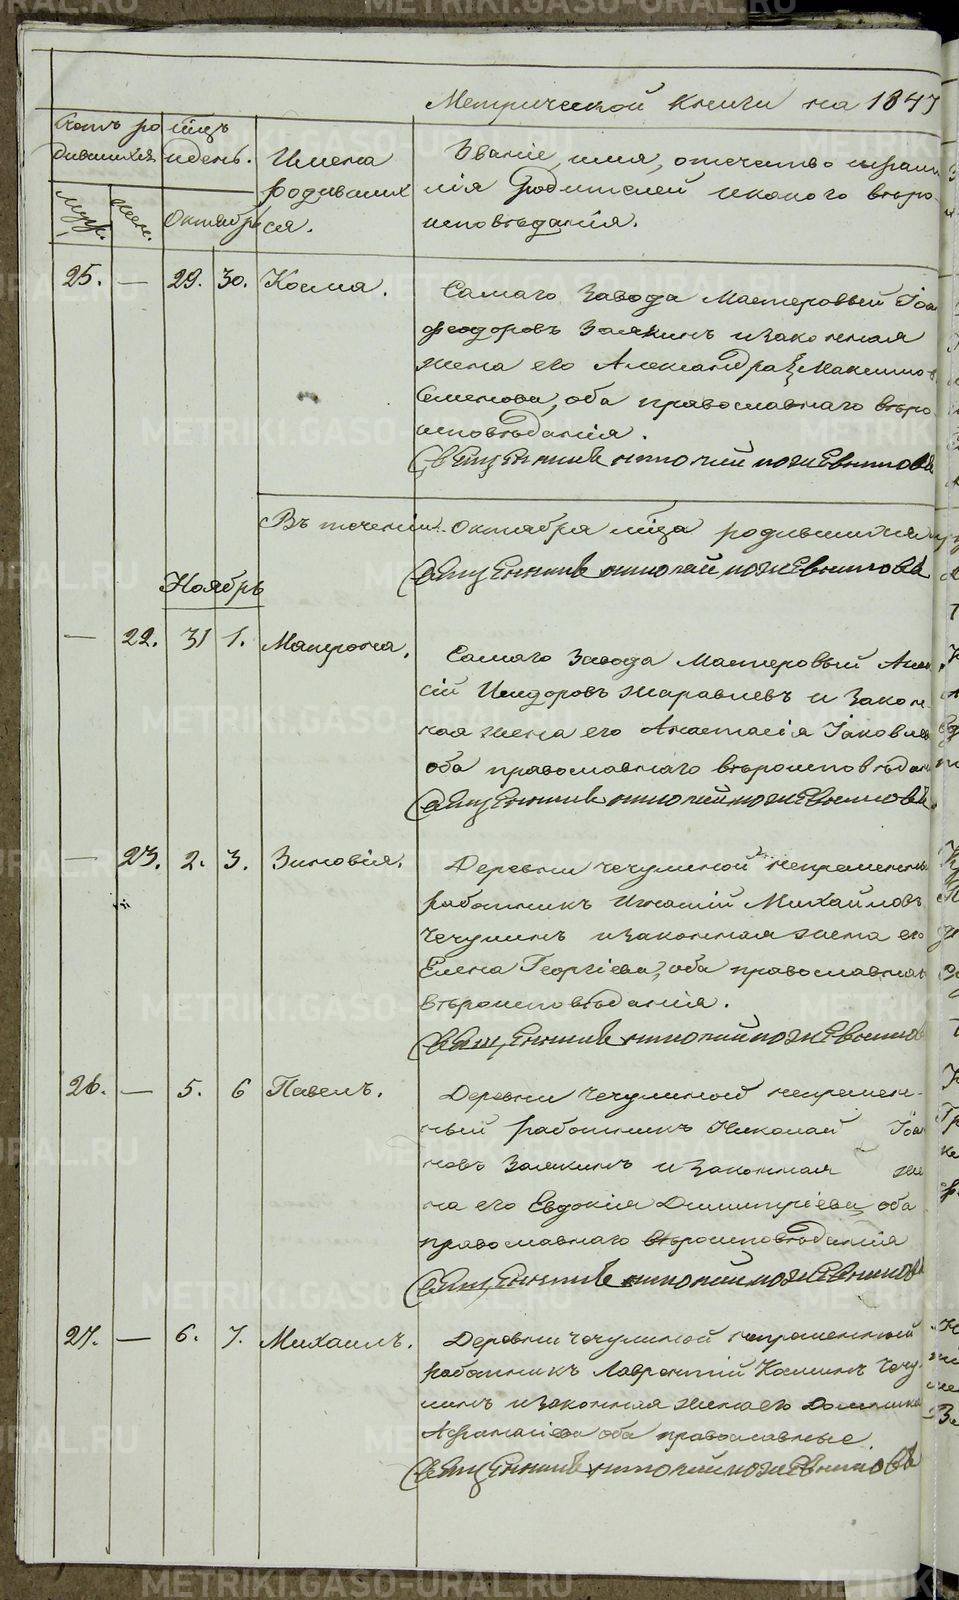 Метрической книги на 1847
Счетъ ро
дившихся
мѣцъ
идень.
Имена
родивших
ся.
Званіе, имя, отечество ифами
лія родителей икакого вѣро
исповѣданія.
Муж.
Жен.
Октябрь
25. — 29. 30. Косма.
Самаго Завода Мастеровый Іоа
Феодоровъ Заякинъ изаконная
жена его Александра Максимов
Семенова, оба православнаго вѣро
исповѣданія.
Священникъ
Въ теченіи Октября мѣца родившихся
Священникъ
Ноябрь
— 22. 31 1. Матрона.
Самаго Завода Мастеровый Алек
сій Исидоровъ Жаравлевъ и Закон
ная жена его Анастасія Іаковлев
оба православнаго вѣроисповѣдан
Священникъ
— 23. 2. 3. Зиновія.
Деревни Чечулиной непременны
работникъ Игнатій Михайловъ
Чечулинъ изаконная жена его
Елена Георгіева, оба православнаг
вѣроисповѣданія.
Священникъ
26. — 5. 6 Павелъ.
Деревни Чечулиной непремен-
ный работникъ Николай Іоан
новъ Заякинъ изаконная же
на его Евдокія Димитріева, оба
православнаго вѣроисповѣданія
Священникъ
27. — 6. 7. Михаилъ.
Деревни Чечулиной непременный
работникъ Лаврентій Косминъ Чечу
линъ изаконная жена его Домника
Афанасіева оба православные.
Священникъ
METRIKI.GASO-URAL.RU